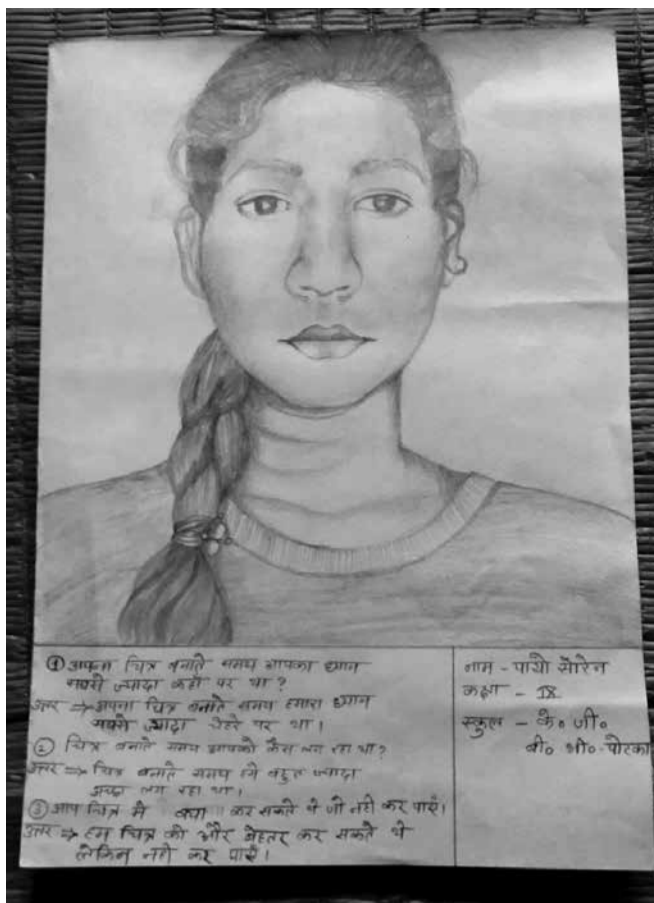 ① आपना चित्र बनाते समय आपका ध्यान
सबसे ज्यादा कहाँ पर था ?
उत्तर ⇒ अपना चित्र बनाते समय हमारा ध्यान
सबसे ज्यादा चेहरे पर था।
② चित्र बनाते समय आपको कैसा लग रहा था ?
उत्तर ⇒ चित्र बनाते समय हमें बहुत ज्यादा
अच्छा लग रहा था।
③ आप चित्र में क्या कर सकते थे जो नहीं कर पाएँ।
उत्तर ⇒ हम चित्र को और बेहतर कर सकते थे
लेकिन नहीं कर पाएँ।
नाम - पायो सोरेन
कक्षा - IX
स्कुल - के॰ जी॰
बी॰ भी॰ पोटका